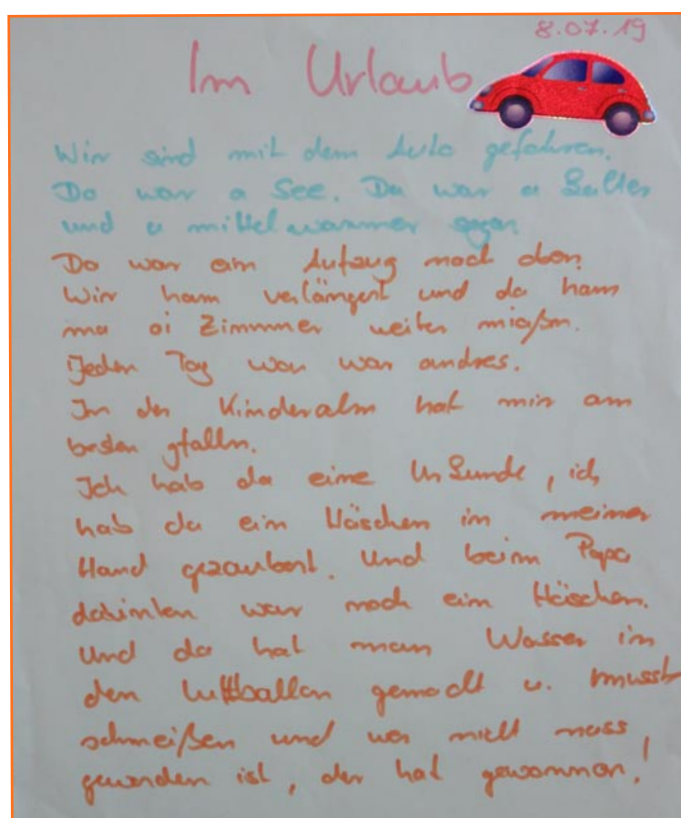 8.07.19
Im Urlaub
Wir sind mit dem Auto gefahren.
Do war a See. Da war a kalter
und a mittelwarmer
Do war ein Aufzug nach oben.
Wir ham verlängert und da ham
ma oi Zimmer weiter miaßn.
Jeden Tag war was andres.
In der Kinderalm hat mir am
besten gfalln.
Ich hab da eine Urkunde, ich
hab da ein Häschen in meiner
Hand gezaubert. Und beim Papa
dahinten war noch ein Häschen.
Und da hat man Wasser in
den Luftballon gemacht u. musst
schmeißen und wer nicht nass
geworden ist, der hat gewonnen!